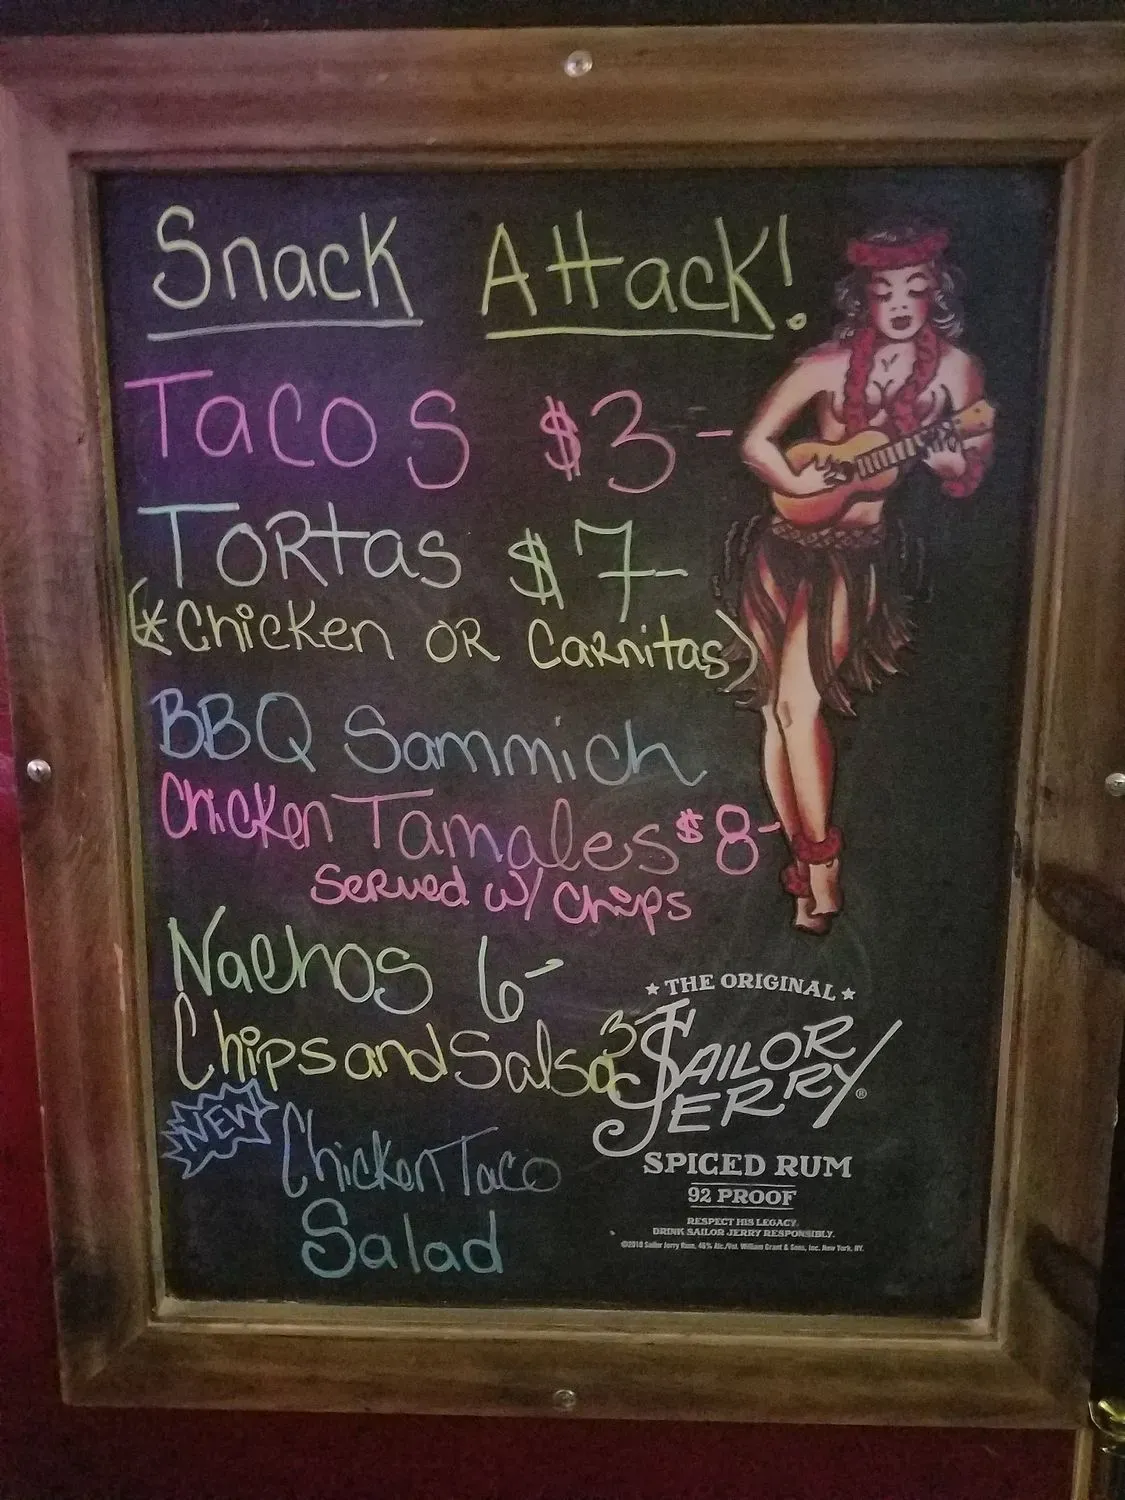 Snack Attack!
Tacos $3-
Tortas $7-
(*Chicken or Carnitas)
BBQ Sammich
Chicken Tamales $8-
Served w/ Chips
Nachos 6-
Chips and Salsa 3
NEW
Chicken Taco
Salad
★ THE ORIGINAL ★
SAILOR
JERRY®
SPICED RUM
92 PROOF
RESPECT HIS LEGACY.
DRINK SAILOR JERRY RESPONSIBLY.
©2018 Sailor Jerry Rum, 46% Alc./Vol. William Grant & Sons, Inc. New York, NY.